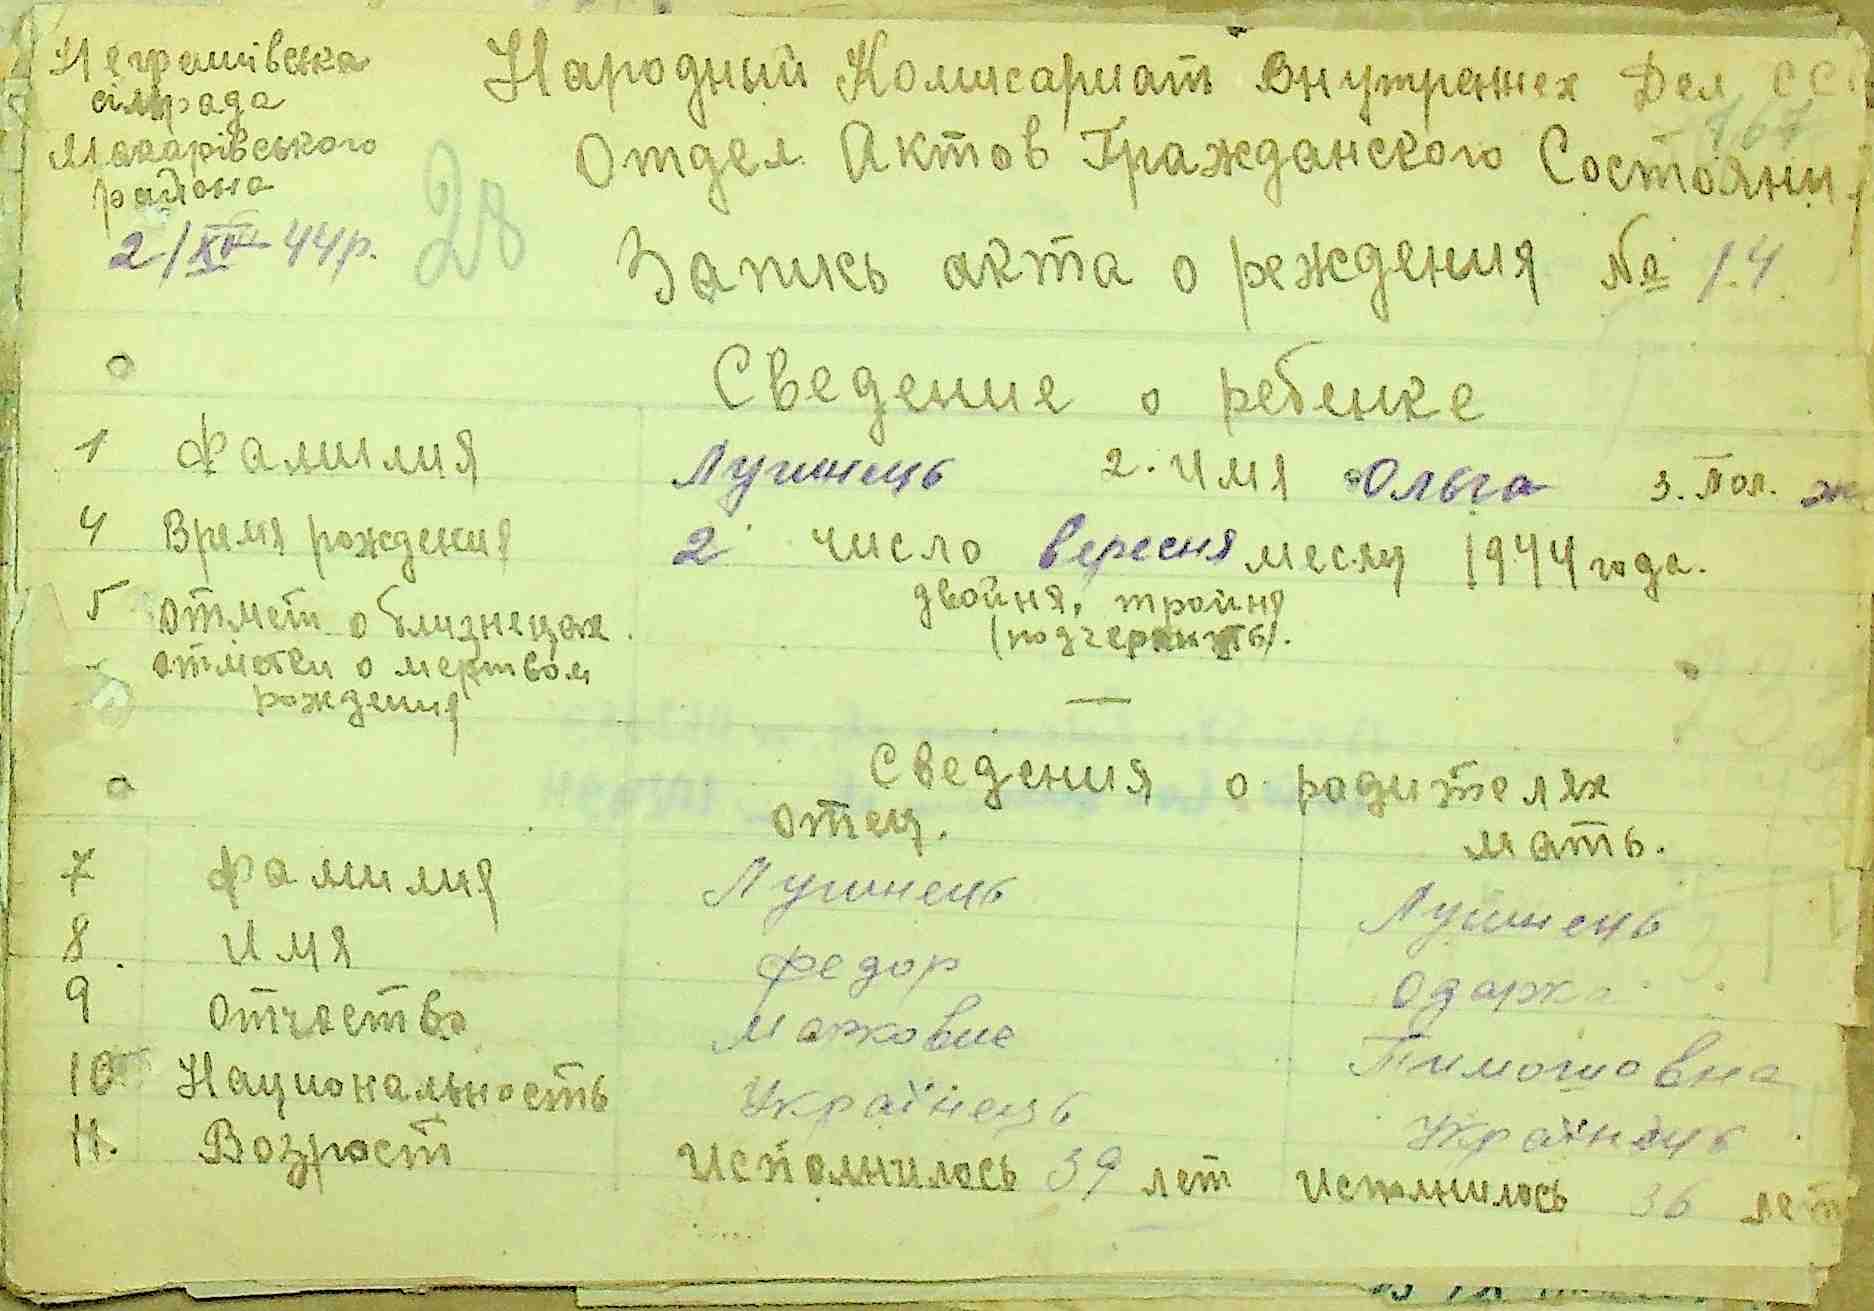 Неграшівська
сільрада
Макарівського
района
2/XII 44р.
28
Народный Комисариат Внутренех Дел СС
167
Отдел Актов Гражданского Состояни
Запись акта о реждения № 14
Сведение о ребенке
1 Фамилия Лугинець 2. Имя Ольга 3. Пол. ж
4 Время рождения 2 число вересня месяц 1944 года.
5 отмети о близнецах. двойня, тройня
(подчеркнуть).
отметки о мертвом
рождения —
Сведения о родителях
отец. мать.
7 Фамилия Лугинець Лугинець
8. Имя Федор Одарка
9 Отчество Маркович Тимошовна
10 Национальность Українець Українець
11. Возраст Исполнилось 39 лет Исполнилось 36 лет